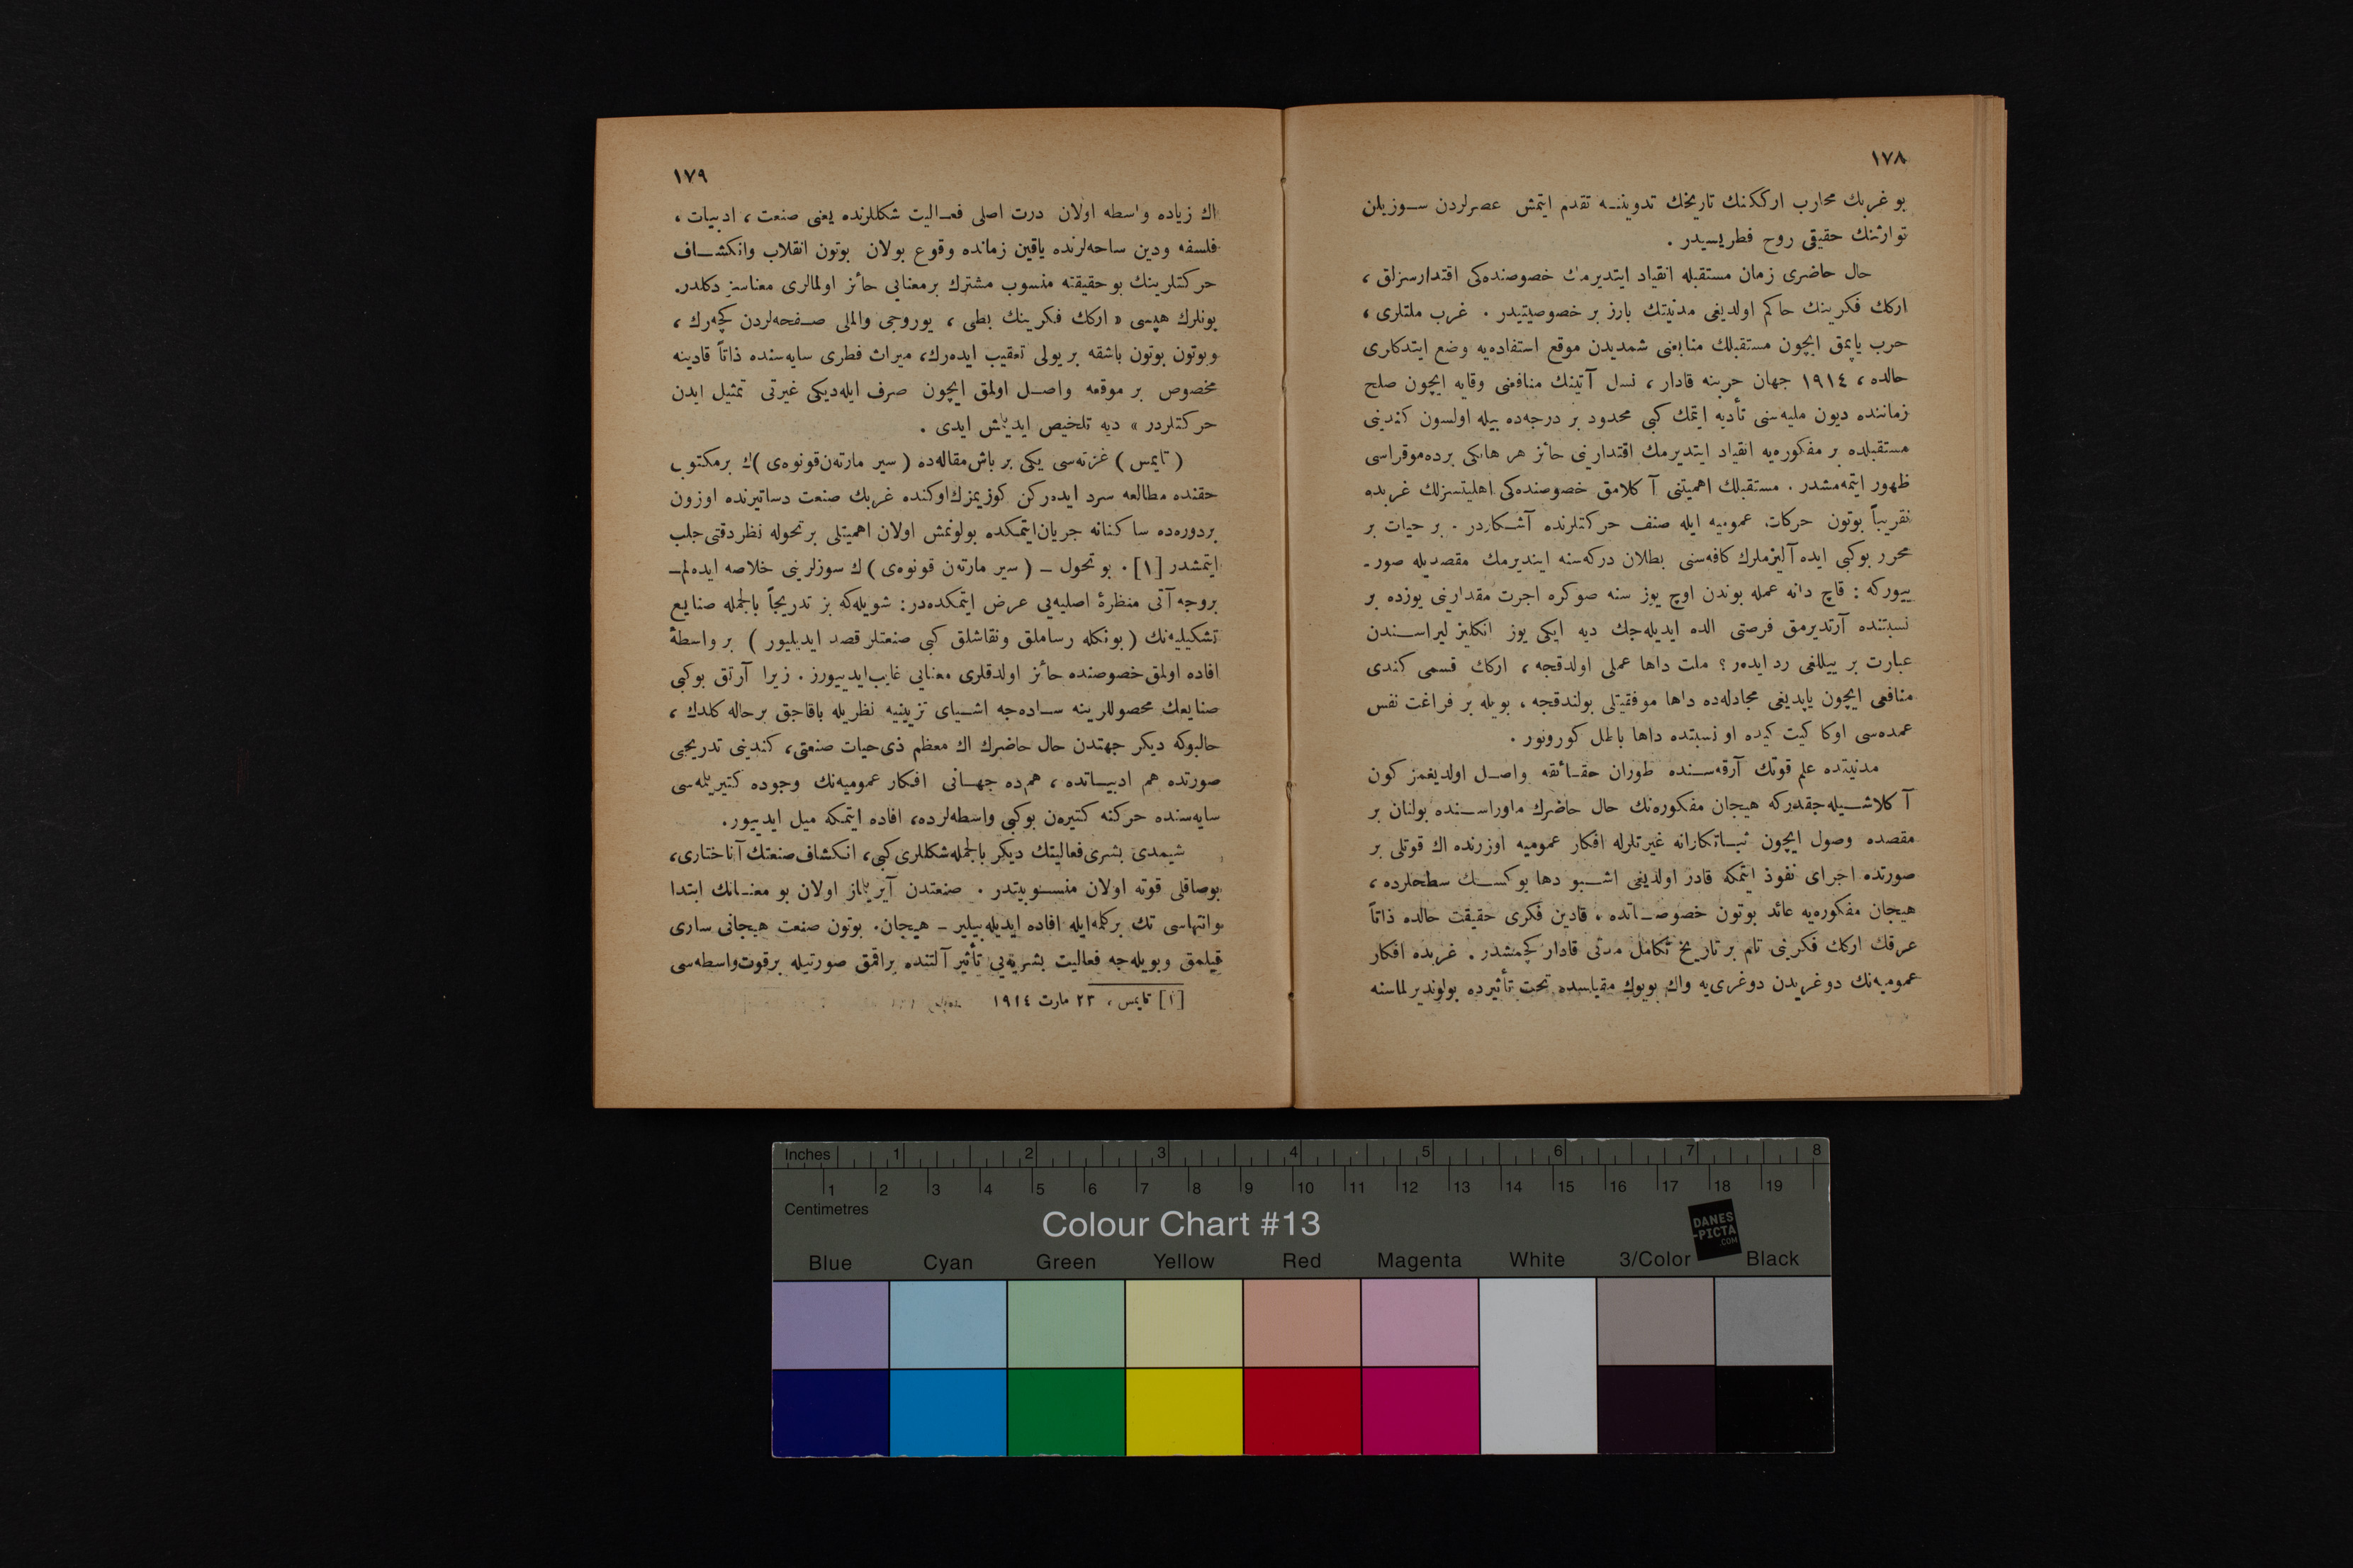 ١٧٨
بو غربك محارب ارككنك تاريخك تدويننه تقدم ايتمش عصرلردن سوزيلن
توارثنك حقيقى روح فطريسيدر .
حال حاضرى زمان مستقبله انقياد ايتديرمك خصوصنده‌كى اقتدارسزلق ،
اركك فكرينك حاكم اولديغى مدنيتك بارز بر خصوصيتيدر . غرب ملتلرى ،
حرب ياپمق ايچون مستقبلك منابعنى شمديدن موقع استفاده‌يه وضع ايتدكلرى
حالده ، ١٩١٤ جهان حربنه قادار ، نسل آتينك منافعنى وقايه ايچون صلح
زماننده ديون مليه‌سنى تأديه ايتمك كبى محدود بر درجه‌ده بيله اولسون كندينى
مستقبلده بر مفكوره‌يه انقياد ايتديرمك اقتدارينى حائز هر هانكى برده‌موقراسى
ظهور ايتمه‌مشدر . مستقبلك اهميتنى آ كلامق خصوصنده‌كى اهليتسزلك غربده
تقريباً بوتون حركات عموميه ايله صنف حركتلرنده آشكاردر . بر حيات بر
محرر بوكبى ايده آليزملرك كافه‌سنى بطلان دركه‌سنه اينديرمك مقصديله صور-
ييوركه : قاچ دانه عمله بوندن اوچ يوز سنه صوكره اجرت مقدارينى يوزده بر
نسبتنده آرتديرمق فرصتى الده ايديله‌جك ديه ايكى يوز انكليز ليراسندن
عبارت بر ييللغى رد ايده‌ر ؟ ملت داها عملى اولدقجه ، اركك قسمى كندى
منافعى ايچون ياپديغى مجادله‌ده داها موفقيتلى بولندقجه ، بويله بر فراغت نفس
عمده‌سى اوكا كيت كيده او نسبتده داها باطل كورونور .
مدنيتده علم قوتك آرقه‌سنده طوران حقائقه واصل اولديغمز كون
آ كلاشيله‌جقدركه هيجان مفكوره‌نك حال حاضرك ماوراسنده بولنان بر
مقصده وصول ايچون ثباتكارانه غيرتلرله افكار عموميه اوزرنده اك قوتلى بر
صورتده اجراى نفوذ ايتمكه قادر اولديغى اشبو دها يوكسك سطحلرده ،
هيجان مفكوره‌يه عائد بوتون خصوصاتده ، قادين فكرى حقيقت حالده ذاتاً
عرقك اركك فكرينى تام بر تاريخ تكامل مدتى قادار كچمشدر . غربده افكار
عموميه‌نك دوغريدن دوغرى‌يه واك بويوك مقياسده تحت تأثيرده بولونديرلماسنه
١٧٩
اك زياده واسطه اولان درت اصلى فعاليت شكللرنده يعنى صنعت ، ادبيات ،
فلسفه ودين ساحه‌لرنده ياقين زمانده وقوع بولان بوتون انقلاب وانكشاف
حركتلرينك بو حقيقته منسوب مشترك برمعنايى حائز اولمالرى معناسز دكلدر.
بونلرك هپسى « اركك فكرينك بطى ، يوروجى والملى صفحه‌لردن كچه‌رك ،
وبوتون بوتون باشقه بر يولى تعقيب ايده‌رك، ميراث فطرى سايه‌سنده ذاتاً قادينه
مخصوص بر موقعه واصل اولمق ايچون صرف ايله‌ديكى غيرتى تمثيل ايدن
حركتلردر » ديه تلخيص ايديلمش ايدى .
( تايمس ) غزته‌سى يكى بر باش مقاله‌ده ( سير مارته‌ن قونوه‌ى )ك برمكتوبى
حقنده مطالعه سرد ايده‌ركن كوزيمزك اوكنده غربك صنعت دساتيرنده اوزون
بردوره‌ده ساكنانه جريان ايتمكده بولونمش اولان اهميتلى برتحوله نظر دقتى جلب
ايتمشدر [١] . بو تحول - ( سير مارته‌ن قونوه‌ى ) ك سوزلرينى خلاصه ايده‌لم -
بروجه آتى منظرهٔ اصليه‌يى عرض ايتمكده‌در: شويله‌كه بز تدريجاً بالجمله صنايع
تشكيليه‌نك ( بونكله رساملق ونقاشلق كبى صنعتلر قصد ايديليور ) بر واسطهٔ
افاده اولمق خصوصنده حائز اولدقلرى معنايى غايب ايدييورز . زيرا آرتق بوكبى
صنايعك محصوللرينه ساده‌جه اشياى تزيينيه نظريله باقاجق برحاله كلدك ،
حالبوكه ديكر جهتدن حال حاضرك اك معظم ذى‌حيات صنعتى، كندينى تدريجى
صورتده هم ادبياتده ، هم‌ده جهانى افكار عموميه‌نك وجوده كتيريلمه‌سى
سايه‌سنده حركته كتيره‌ن بوكبى واسطه‌لرده، افاده ايتمكه ميل ايدييور.
شيمدى بشرى فعاليتك ديكر بالجمله شكللرى كبى، انكشاف صنعتك آناختارى،
بوصاقلى قوته اولان منسوبيتدر . صنعتدن آيريلماز اولان بو معنانك ابتدا
وانتهاسى تك بركلمه ايله افاده ايديله‌بيلير - هيجان. بوتون صنعت هيجانى سارى
قيلمق وبويله‌جه فعاليت بشريه‌يى تأثير آلتنده براقمق صورتيله برقوت واسطه‌سى
[١] تايمس ، ٢٣ مارت ١٩١٤
Inches 1 2 3 4 5 6 7 8
1 2 3 4 5 6 7 8 9 10 11 12 13 14 15 16 17 18 19
Centimetres
Colour Chart #13
DANES
-PICTA
.COM
Blue Cyan Green Yellow Red Magenta White 3/Color Black